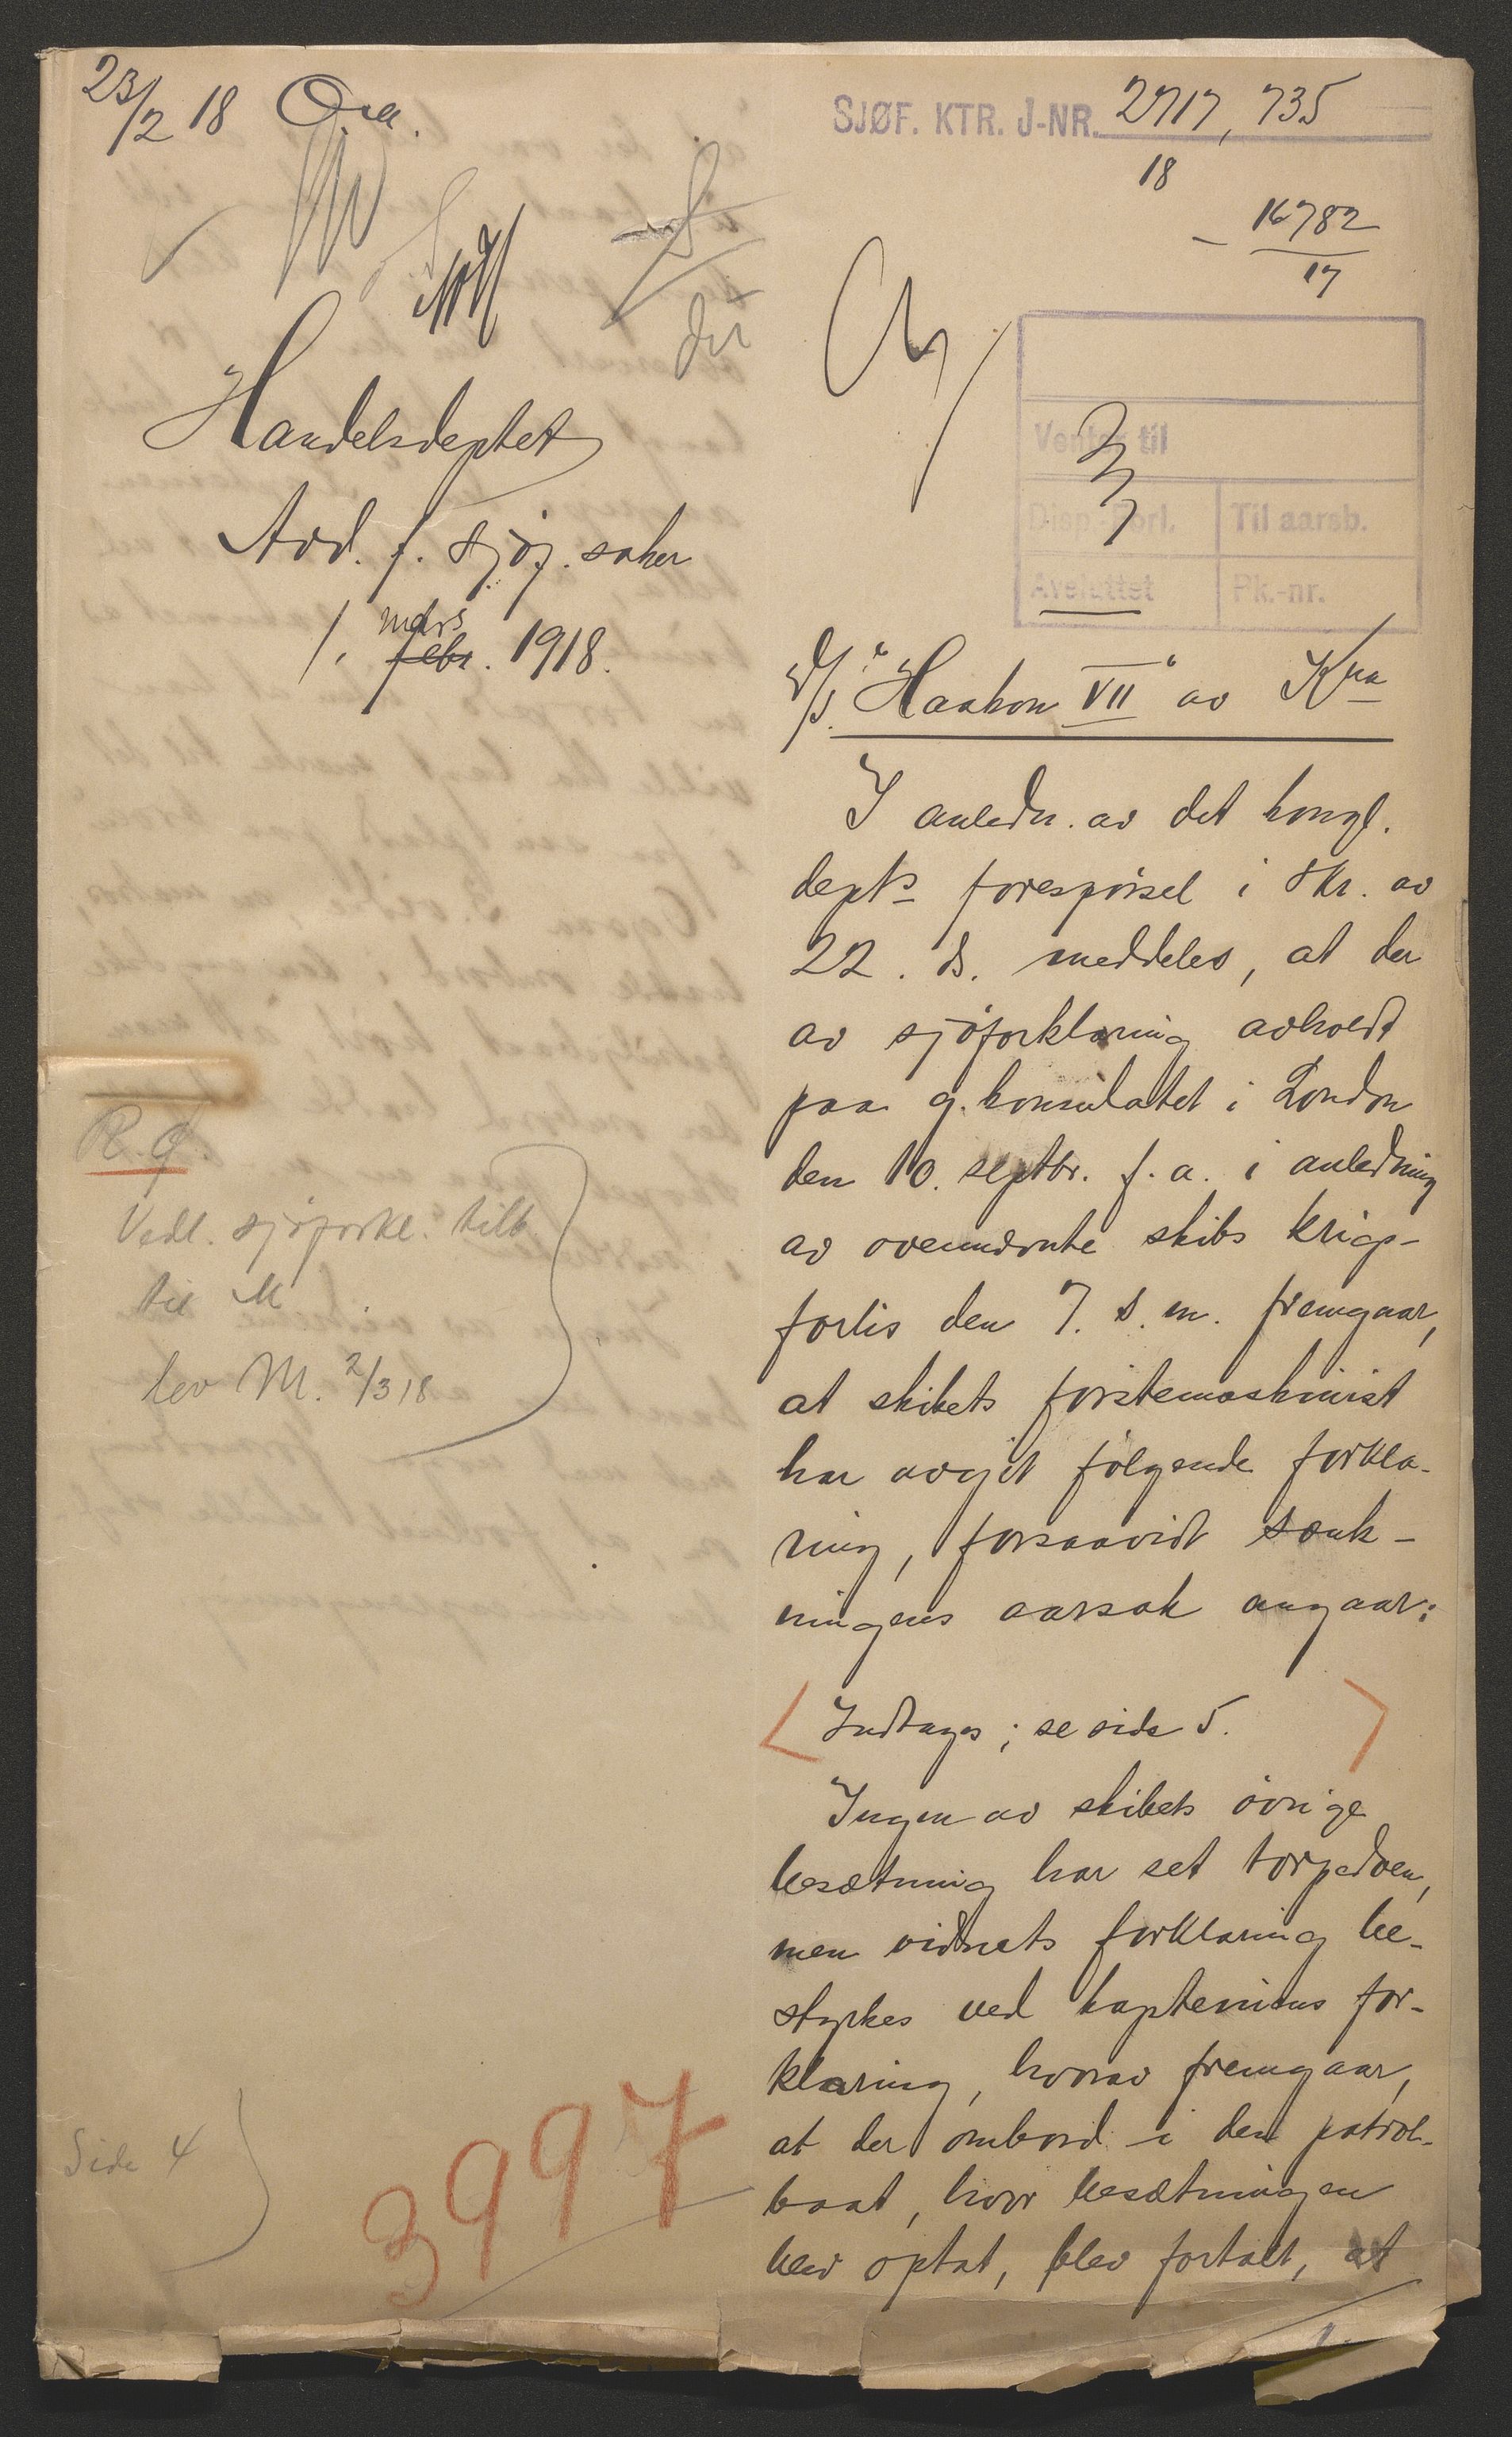 23/2 18 Ora.
SJØF. KTR. J-NR. 2717, 735
18
16782
17
Handelsdeptet
Avd. f. sjøf. saker
1. mars
febr. 1918.
Ventes til
Disp. Forl.
Til aarsb.
Avsluttet
Pk.-nr.
D/S. "Haakon VII" av Kra
I anledn. av det kongl.
depts forespörsel i skr. av
22. ds. meddeles, at der
av sjöforklaring avholdt
paa g.konsulatet i London
den 10. septbr. f.a. i anledning
av ovennævnte skibs krigs-
forlis den 7. s.m. fremgaar,
at skibets förstemaskinist
har avgit fölgende forkla-
ring, forsaavidt sænk-
ningens aarsak angaar:
< Indtages; se side 5. >
Ingen av skibets övrige
besætning har set torpedoen,
men vidnets forklaring be-
styrkes ved kapteinens for-
klaring, hvorav fremgaar,
at der ombord i den patrol-
baat, hvor besætningen
blev optat, blev fortalt, at
R.O.
Vedl. sjöforkl. tilb.
til M
lev M. 2/3 18
Side 4
3997